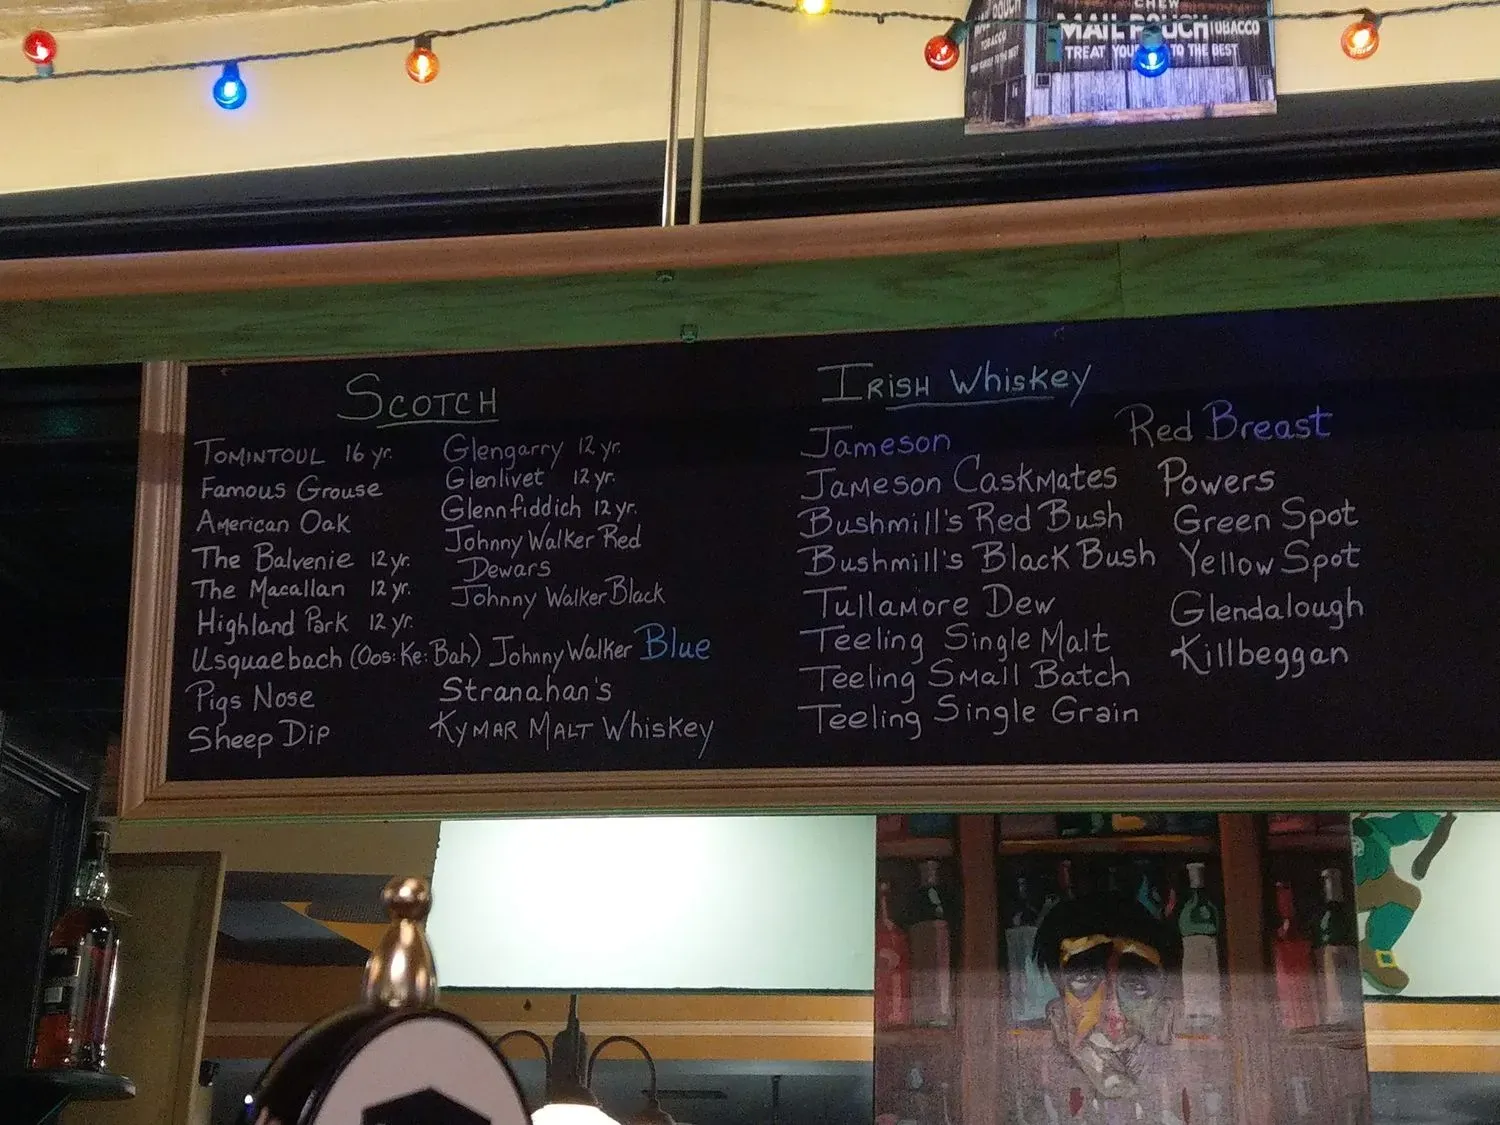 CHEW
MAIL POUCH TOBACCO
TREAT YOUR TO THE BEST
POUCH
TOBACCO
SCOTCH
TOMINTOUL 16 yr.
Famous Grouse
American Oak
The Balvenie 12 yr.
The Macallan 12 yr.
Highland Park 12 yr.
Usquaebach (Oos:Ke:Bah)
Pigs Nose
Sheep Dip
Glengarry 12 yr.
Glenlivet 12 yr.
Glennfiddich 12 yr.
Johnny Walker Red
Dewars
Johnny Walker Black
Johnny Walker Blue
Stranahan's
Kymar Malt Whiskey
IRISH Whiskey
Jameson
Jameson Caskmates
Bushmill's Red Bush
Bushmill's Black Bush
Tullamore Dew
Teeling Single Malt
Teeling Small Batch
Teeling Single Grain
Red Breast
Powers
Green Spot
Yellow Spot
Glendalough
Killbeggan